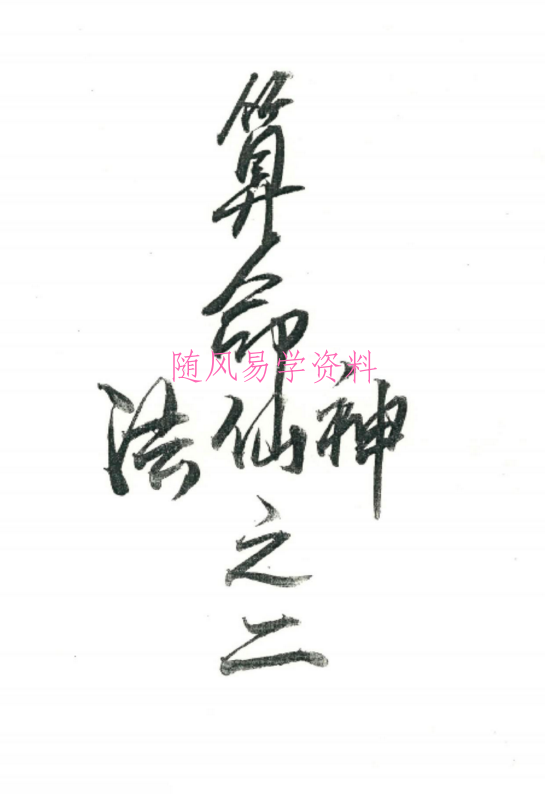 算命
神仙法
之二
随风易学资料